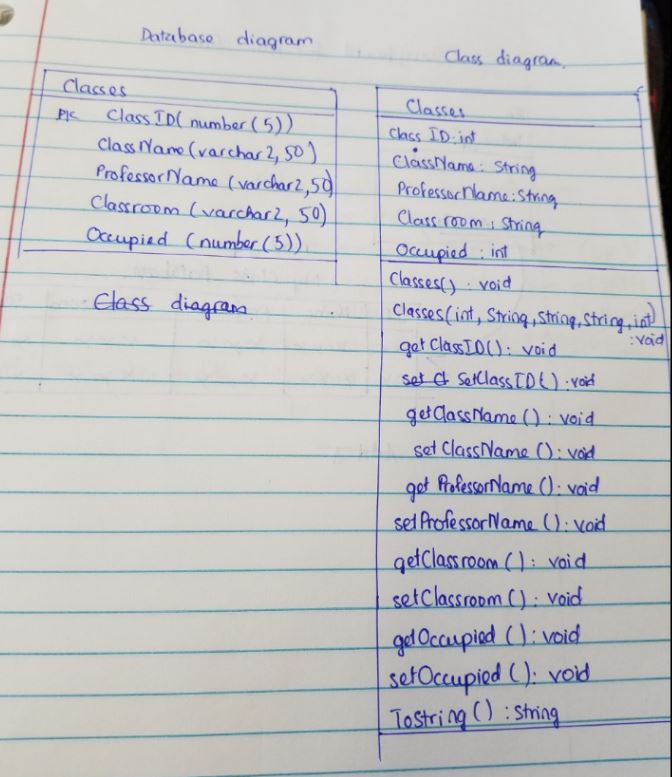 Database diagram
Classes
PK ClassID(number(5))
ClassName(varchar2,50)
ProfessorName(varchar2,50)
Classroom (varchar2, 50)
Occupied (number(5))
Class diagram
Class diagram.
Classes
Class ID: int
ClassName: String
ProfessorName: String
Classroom: String
Occupied: int
Classes(): void
Classes(int, String, String, String, int)
: void
getClassID(): void
SetClassID(): void
getClassName(): void
setClassName(): void
get ProfessorName(): void
setProfessorName(): void
getClassroom(): void
setClassroom(): void
getOccupied(): void
setOccupied(): void
ToString(): String